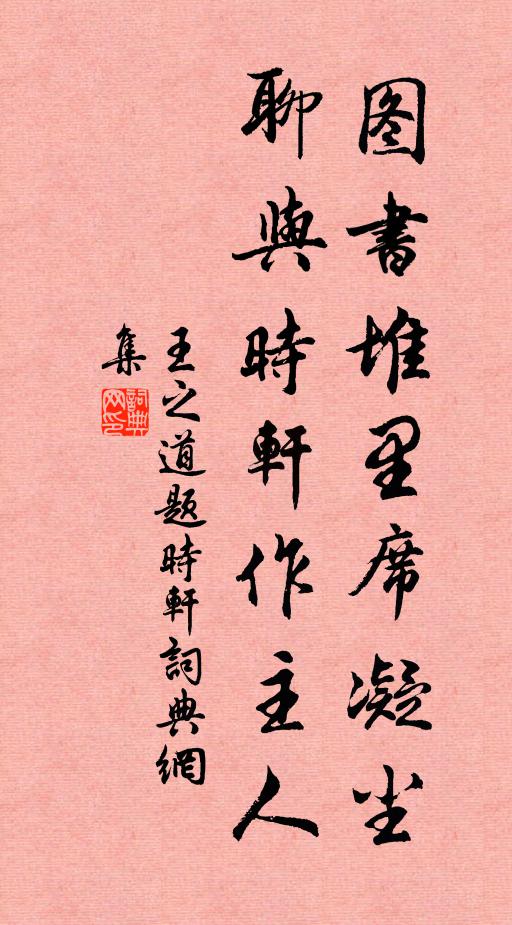 图書堆里席凝尘
聊與時軒作主人
王之道題時軒詞典網
集
詞典网印